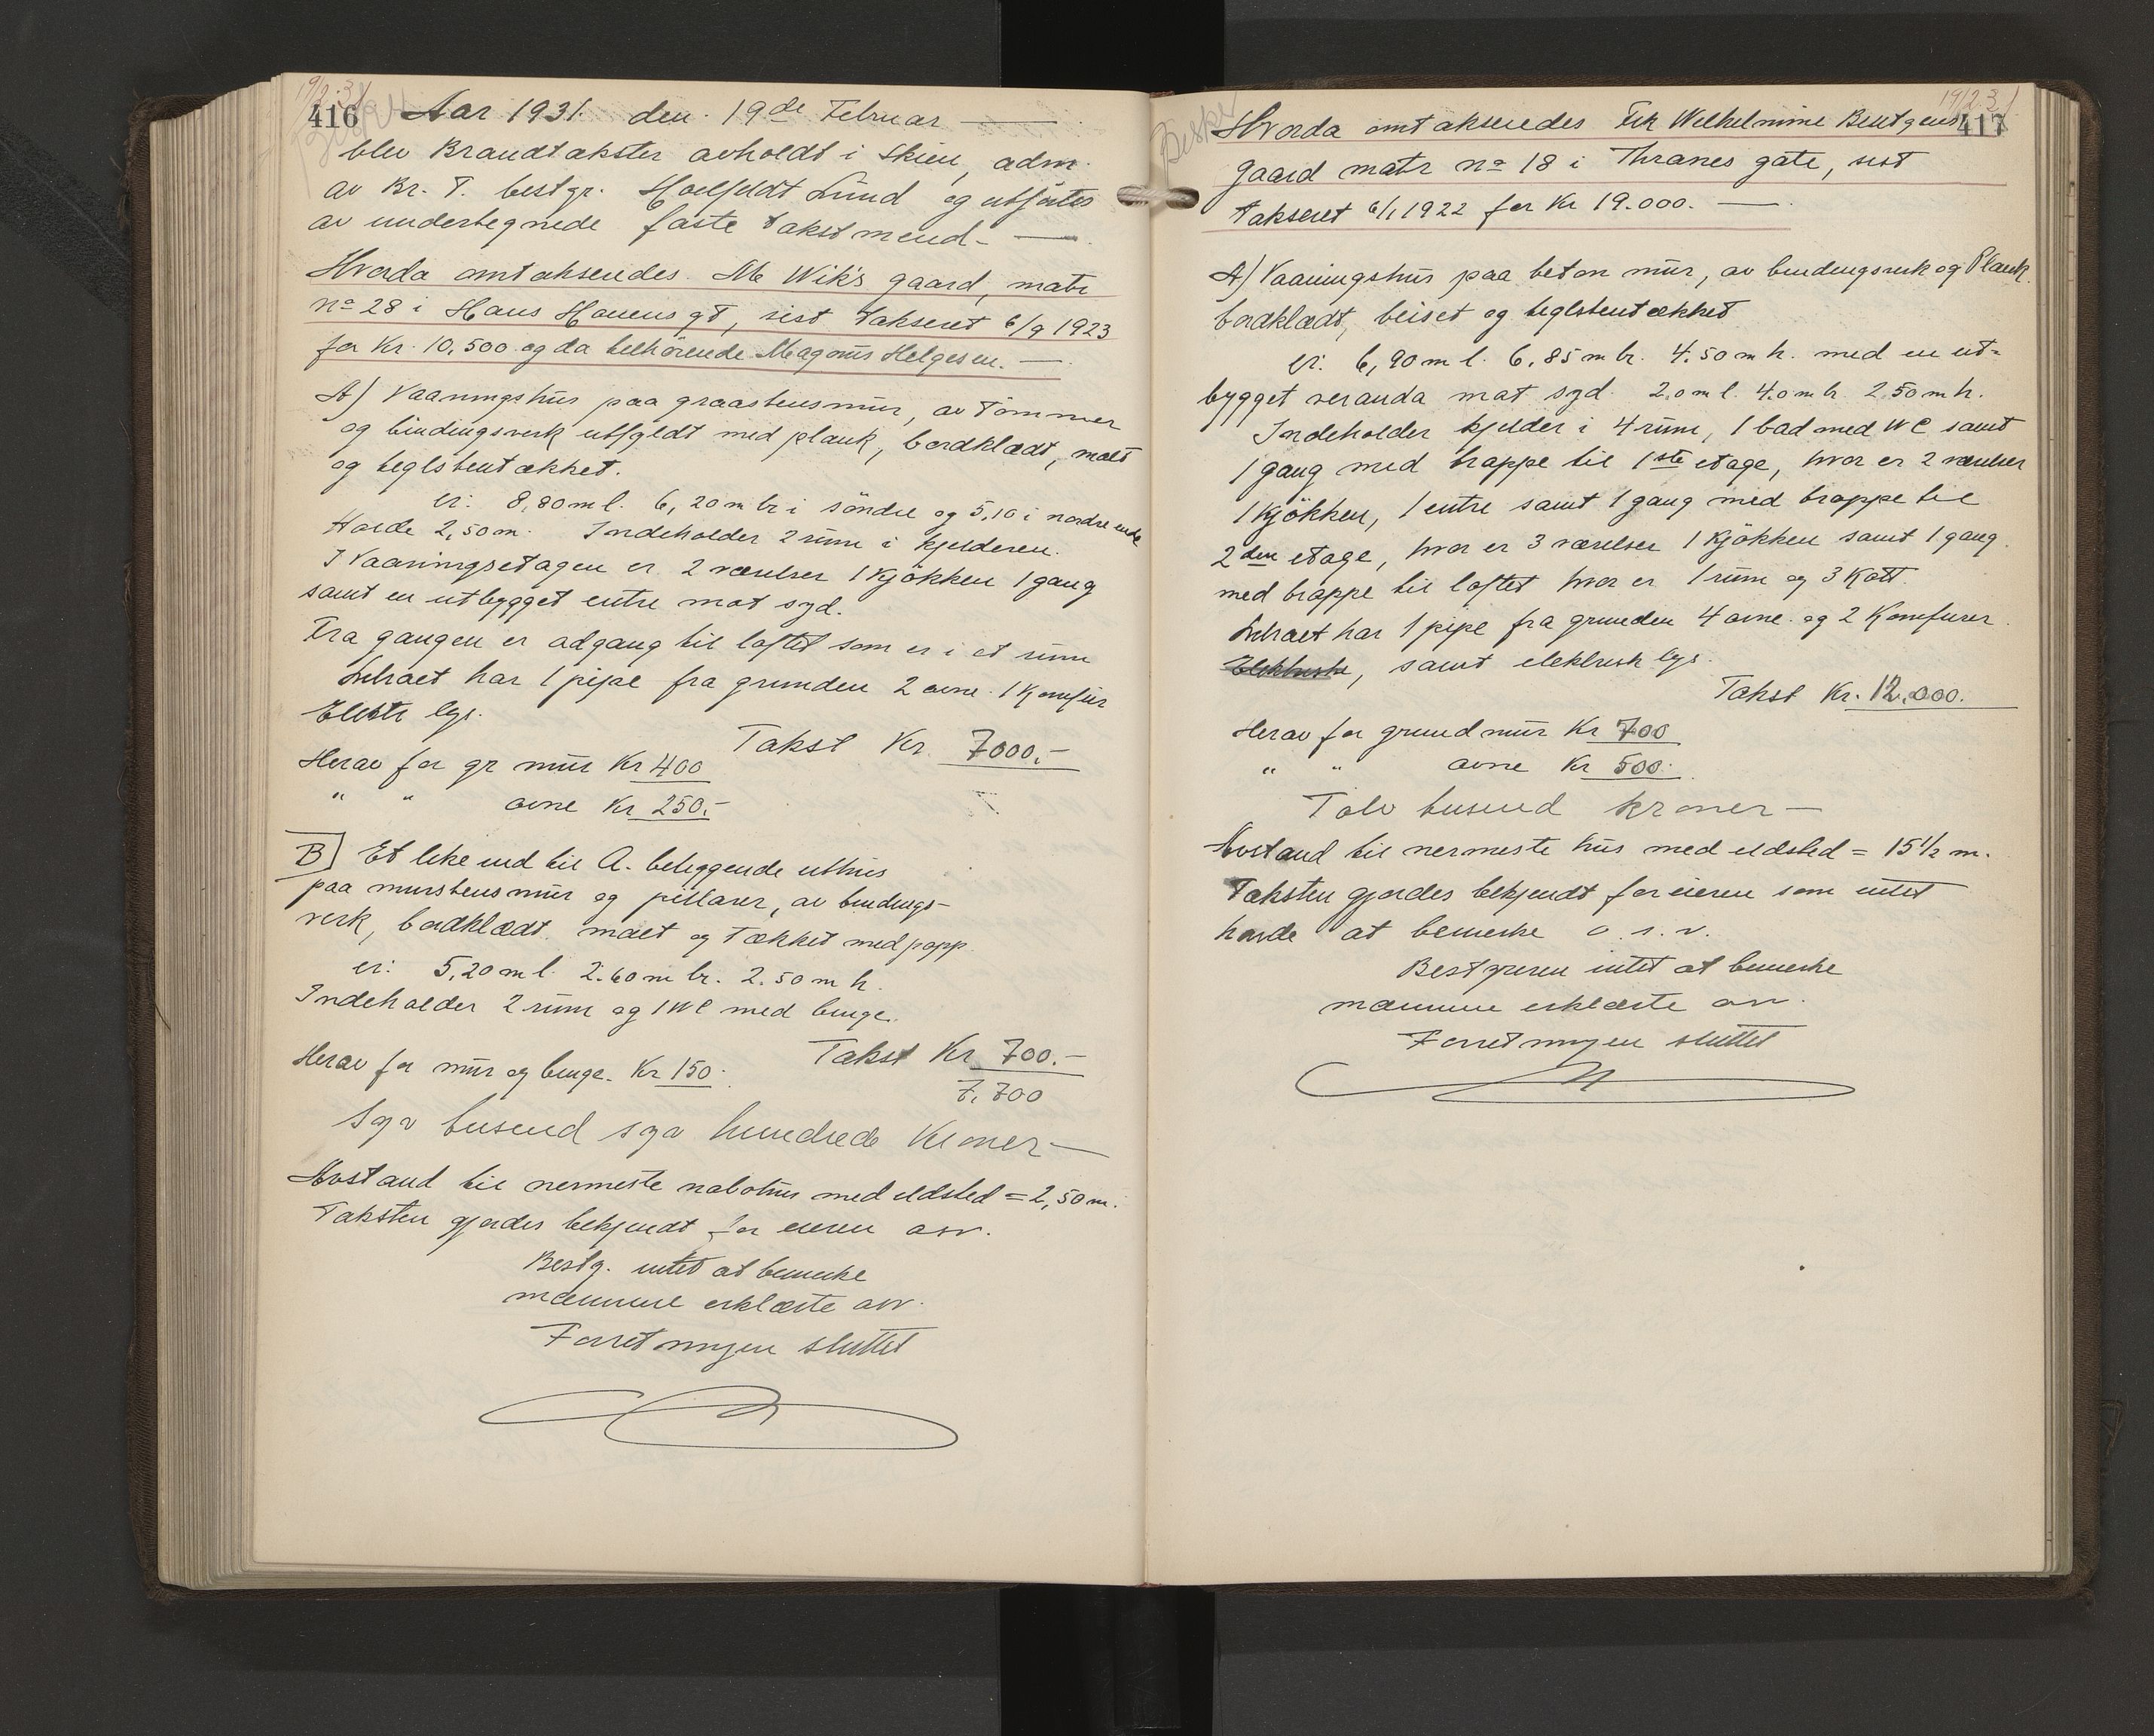 19/2.31
416 Aar 1931. den. 19de Februar
blev Brandtakster avholdt i Skien, adm.
av Br. T. bestyr. Hoelfeldt Lund og utførtes
av undertegnede faste takstmend.
Hvorda omtakseredes. M Wik's gaard, matr
No 28 i Hans Houens gt, sist takseret 6/9 1923
for Kr. 10,500 og da tilhörende Magnus Helgesen.
A) Vaaningshus paa graastensmur, av Tömmer
og bindingsverk utfyldt med plank, bordklædt, malt
og teglstentækket.
er: 8,80 m l. 6,20 m br i söndre og 5,10 i nordre ende
Høide 2,50 m. Indeholder 2 rum i kjelderen.
I Vaaningsetagen er 2 værelser 1 Kjökken 1 gang
samt en utbygget entre mot syd.
Fra gangen er adgang til loftet som er i et rum
Indraet har 1 pipe fra grunden 2 ovne. 1 Komfur
Elektr lys.
Takst Kr. 7000.-
Herav for gr mur Kr 400
" " ovne Kr 250.-
B) Et like ved til A. beliggende uthus
paa murstensmur og pillarer, av bindings-
verk, bordklædt. malt og Tækket med papp
er: 5,20 m l. 2.60 m br. 2.50 m h.
Indeholder 2 rum og 1 WC med binge.
Takst Kr 700.-
Herav for mur og binge. Kr 150.
7,700
Syv tusend syv hundrede Kroner
Avstand til nermeste nabohus med ildsted = 2,50 m.
Taksten gjordes bekjendt for eieren osv.
Besty. intet at bemerke
mænnene erklærte osv.
Forretningen sluttet
19/2 31
417
Hvorda omtakseredes Frk Wilhelmine Bentzens
gaard matr No 18 i Thranes gate, sist
Takseret 6/1 1922 for Kr 19.000.
A) Vaaningshus paa beton mur, av bindingsverk og Plank
bordklædt, beiset og teglstentækket
er: 6,90 m l. 6,85 m br. 4.50 m h. med en ut-
bygget veranda mot syd. 2.0 m l. 4.0 m br 2.50 m h.
Indeholder kjelder i 4 rum, 1 bad med WC samt
1 gang med trappe til 1ste etage, hvor er 2 værelser
1 Kjökken, 1 entre samt 1 gang med trappe til
2den etage, hvor er 3 værelser 1 Kjökken samt 1 gang
med trappe til loftet hvor er 1 rum og 3 Kott.
Indraet har 1 pipe fra grunden 4 ovne og 2 Komfurer.
Elektriske, samt elektrisk lys.
Takst Kr. 12.000.
Herav for grundmur Kr 700
" " ovne Kr 500.
Tolv tusend kroner
Avstand til nermeste hus med ildsted = 15 1/2 m.
Taksten gjordes bekjendt for eieren som intet
havde at bemerke o. s. v.
Bestyreren intet at bemerke
mænnene erklærte osv.
Forretningen sluttet